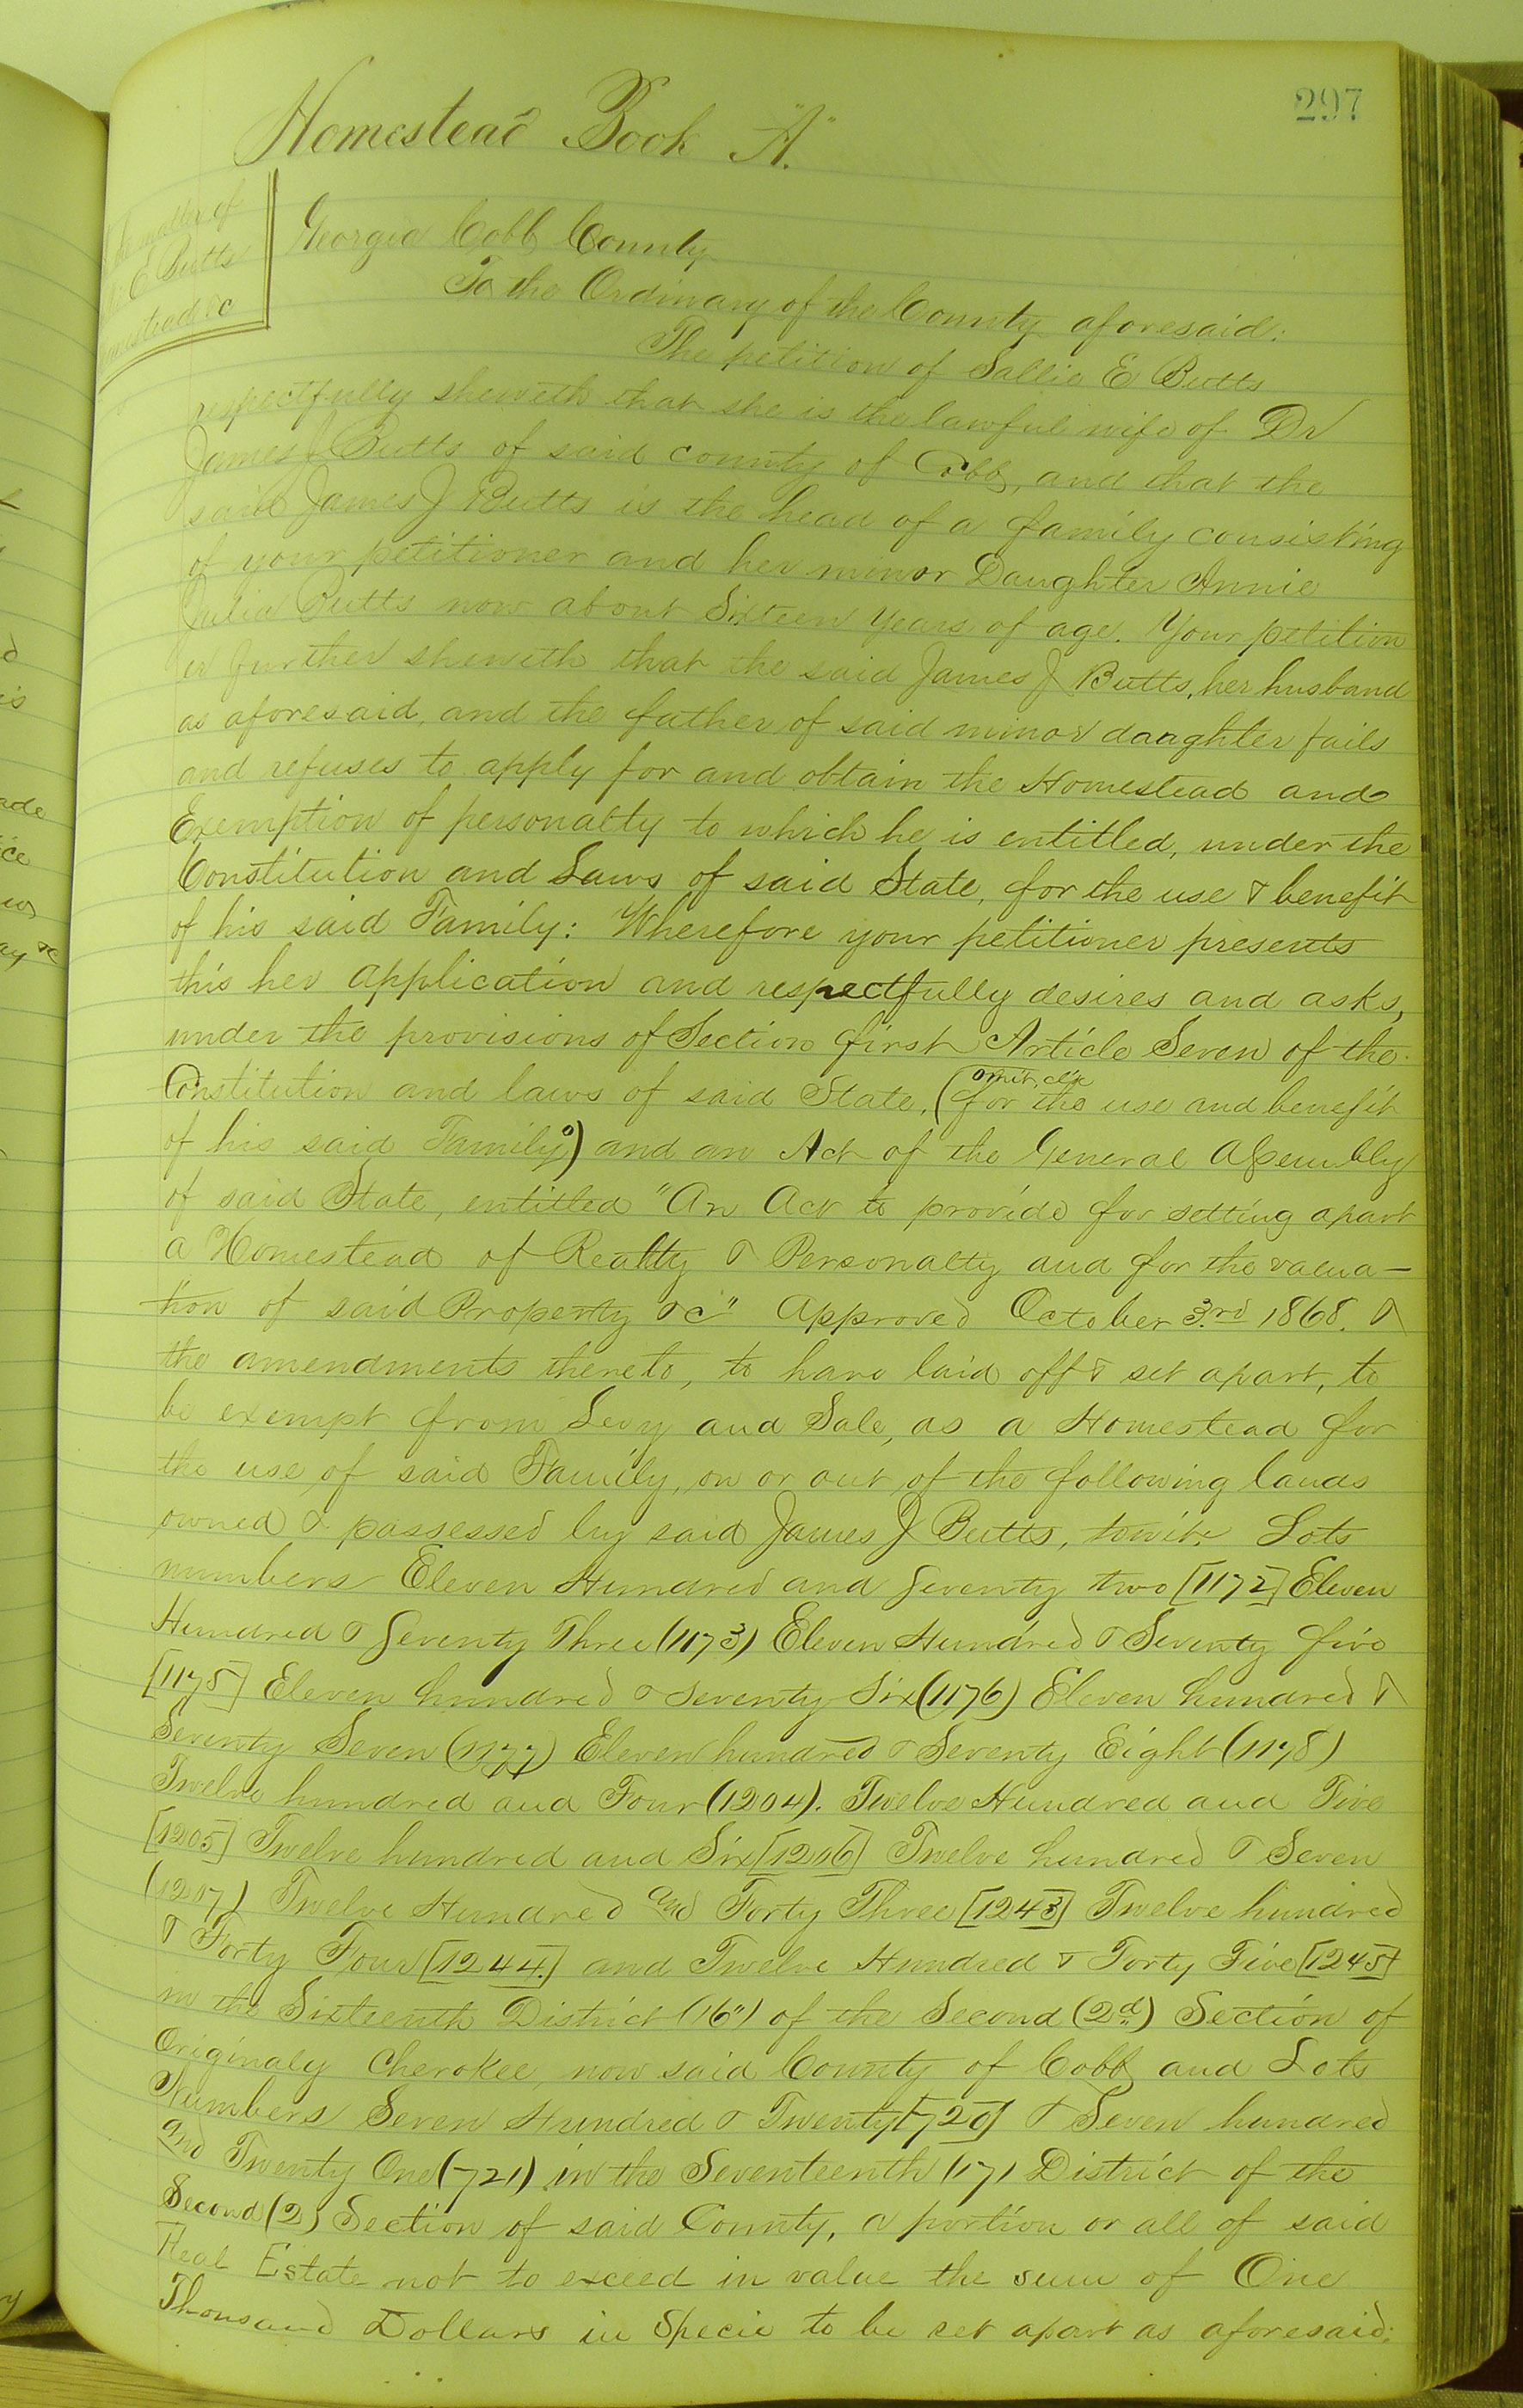 297
Homestead Book "A."
matter of
E Butts
&c
Georgia Cobb County
To the Ordinary of the County aforesaid:
The petition of Sallie E Butts
respectfully sheweth that she is the lawful wife of Dr
James J Butts of said county of Cobb, and that the
said James J Butts is the head of a family consisting
of your petitioner and her minor Daughter Annie
Julia Butts now about Sixteen Years of age. Your petition
er further sheweth that the said James J Butts, her husband
as aforesaid, and the father of said minor daughter fails
and refuses to apply for and obtain the Homestead and
Exemption of personalty to which he is entitled, under the
Constitution and Laws of said State, for the use & benefit
of his said Family: Wherefore your petitioner presents
this her application and respectfully desires and asks,
under the provisions of Section first Article Seven of the
omit,
Constitution and laws of said State, (for the use and benefit
of his said Family) and an Act of the General Assembly
of said State, entitled "An Act to provide for setting apart
a Homestead of Realty & Personalty and for the valua-
tion of said Property &c" Approved October 3rd 1868. &
the amendments thereto, to have laid off & set apart, to
be exempt from Levy and Sale, as a Homestead for
the use of said Family, on or out of the following lands
owned & possessed by said James J Butts, towit. Lots
numbers Eleven Hundred and Seventy two [1172] Eleven
Hundred & Seventy Three (1173) Eleven Hundred & Seventy five
[1175] Eleven hundred & seventy Six (1176) Eleven hundred &
Seventy Seven (1177) Eleven hundred & Seventy Eight (1178)
Twelve hundred and Four (1204). Twelve Hundred and Five
[1205] Twelve hundred and Six [1206] Twelve hundred & Seven
(1207) Twelve Hundred and Forty Three [1243] Twelve hundred
& Forty Four [1244.] and Twelve Hundred & Forty Five [1245]
in the Sixteenth District (16") of the Second (2d) Section of
Originaly Cherokee, now said County of Cobb and Lots
Numbers Seven Hundred & Twenty [720] & Seven hundred
and Twenty One (721) in the Seventeenth (17) District of the
Second (2) Section of said County, a portion or all of said
Real Estate not to exceed in value the sum of One
Thousand Dollars in Specie to be set apart as aforesaid: